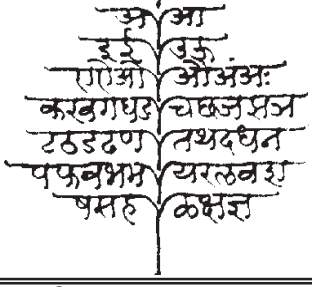 अ आ
इ ई उ ऊ
ए ऐ ओ औ अं अः
क ख ग घ ङ च छ ज झ ञ
ट ठ ड ढ ण त थ द ध न
प फ ब भ म य र ल व श
ष स ह ळ क्ष ज्ञ